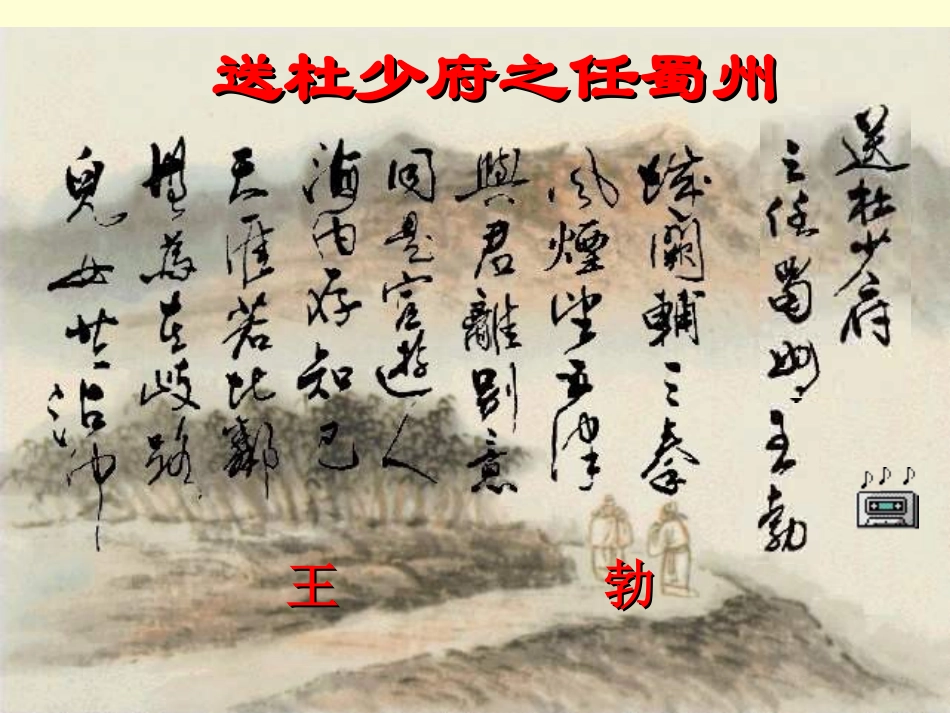 送杜少府之任蜀州
送杜少府
之任蜀州王勃
城闕輔三秦
风煙望五津
與君離別意
同是宦遊人
海内存知己
天涯若比鄰
無為在岐路
兒女共沾巾
王勃